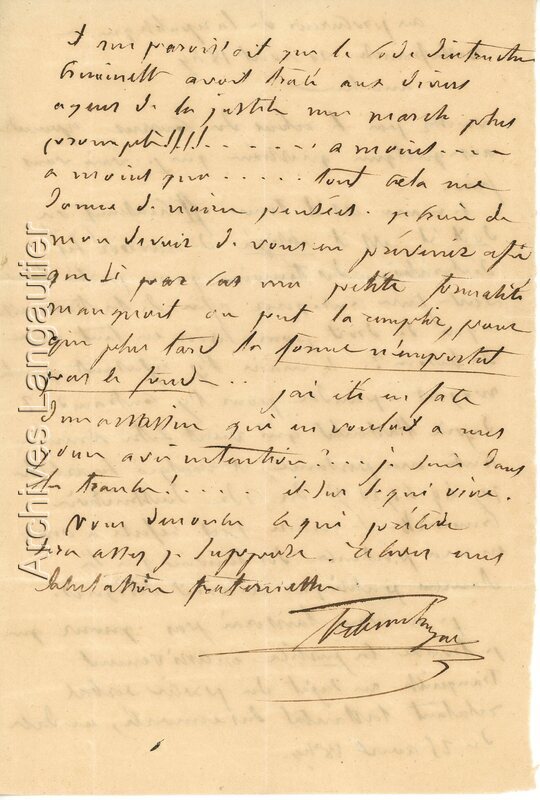 il me paroissoit que le Code d'instruction
Criminelle avoit tracé aux divers
agens de la justice une marche plus
prompte!!!! . . . . . . . a moins . . . .
a moins que . . . . . tout cela me
donne de noires pensées. je crois de
mon devoir de vous en prévenir afin
que si par cas une petite formalité
manquoit on put la remplir, pour
que plus tard la forme n'emportat
pas le fond . . . j'ai été en face
d'un assassin qui en vouloit a mes
jours avec intention! . . . je suis dans
les transes! . . . . . . et sur le qui vive.
Vous demander ce qui précède
sera assez je suppose. recevez mes
Salutations fraternelles
Archives Langautier